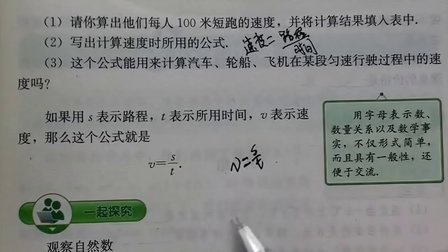 (1) 请你算出他们每人 100 米短跑的速度，并将计算结果填入表中.
(2) 写出计算速度时所用的公式. 速度=路程/时间
(3) 这个公式能用来计算汽车、轮船、飞机在某段匀速行驶过程中的速
度吗?
如果用 s 表示路程，t 表示所用时间，v 表示速
度，那么这个公式就是
v=s/t.
v=s/t
用字母表示数、
数量关系以及数学事
实，不仅形式简单，
而且具有一般性，还
便于交流.
一起探究
观察自然数